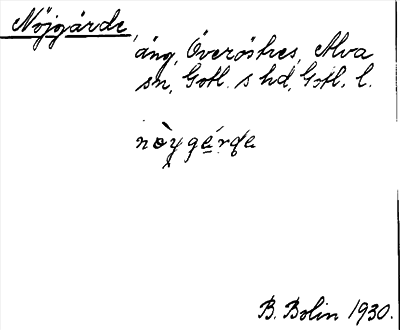 Nöjgärde,
äng, Överöstves, Alva
sn, Gotl. s hd, Gotl. l.
nòygérde
B. Bolin 1930.